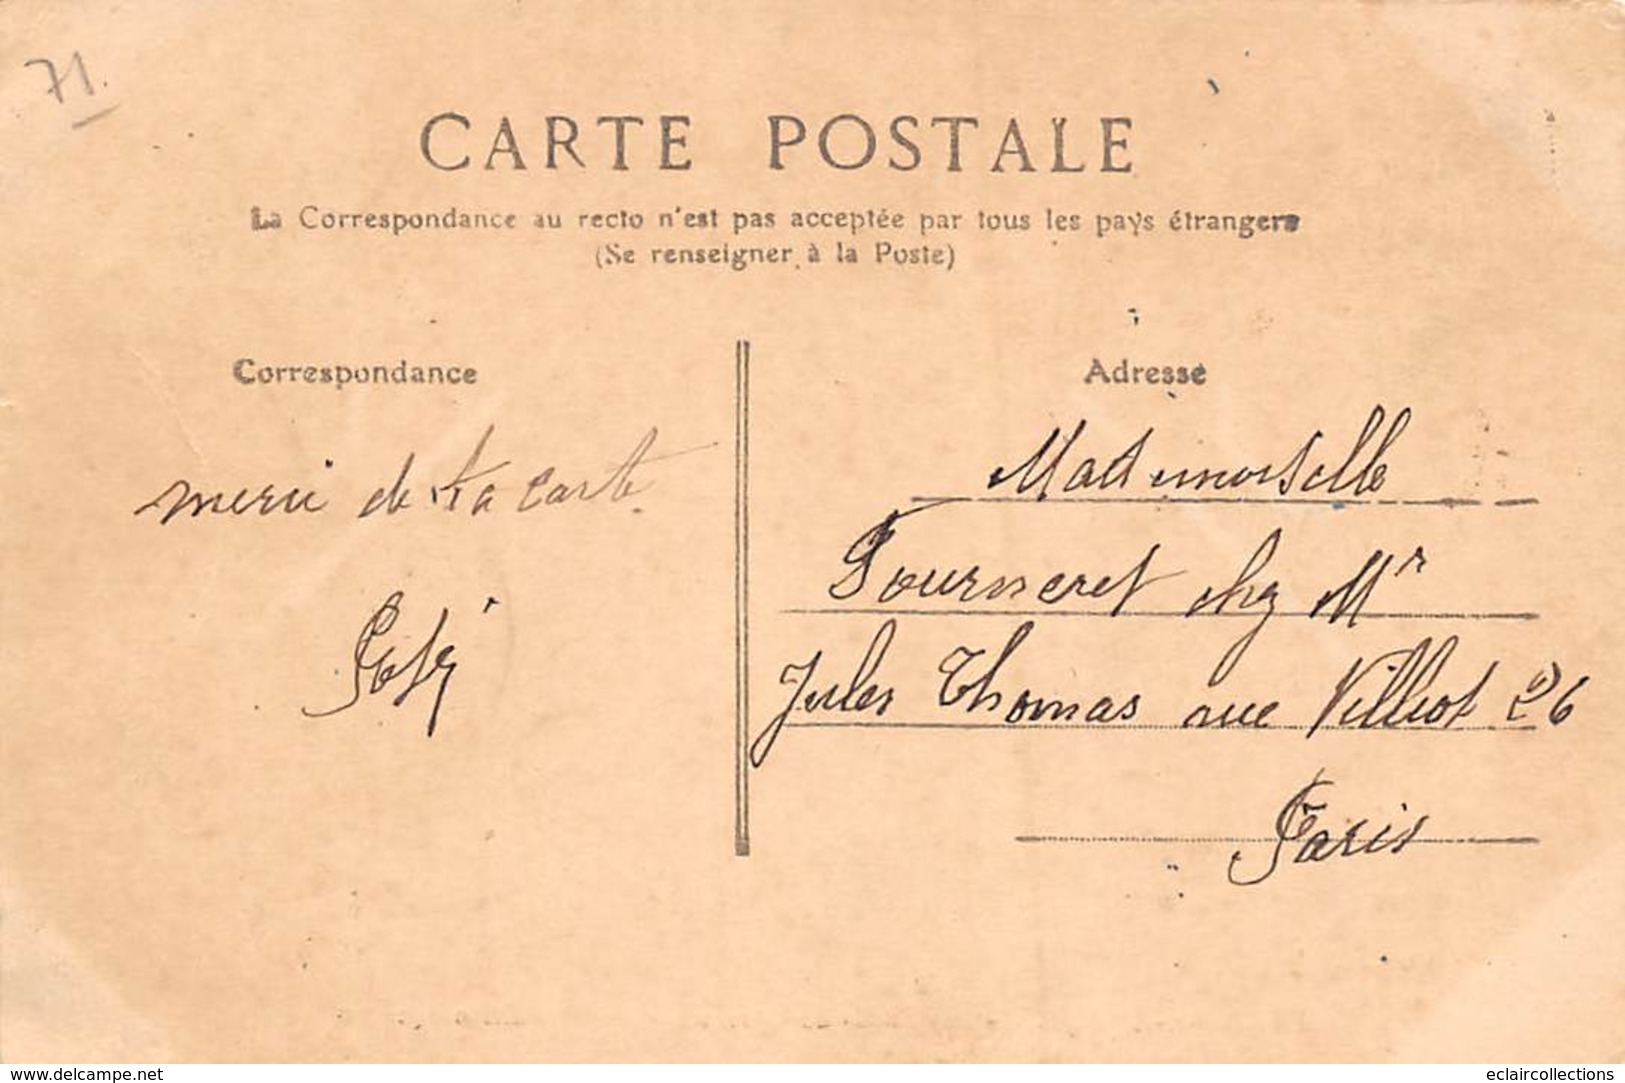 71.
CARTE POSTALE
La Correspondance au recto n'est pas acceptée par tous les pays étrangers
(Se renseigner à la Poste)
Correspondance
Adresse
merci de ta carte
Mademoiselle
Fourneret chez Mr
Jules Thomas rue Villiot 26
Paris
www.delcampe.net
eclaircollections